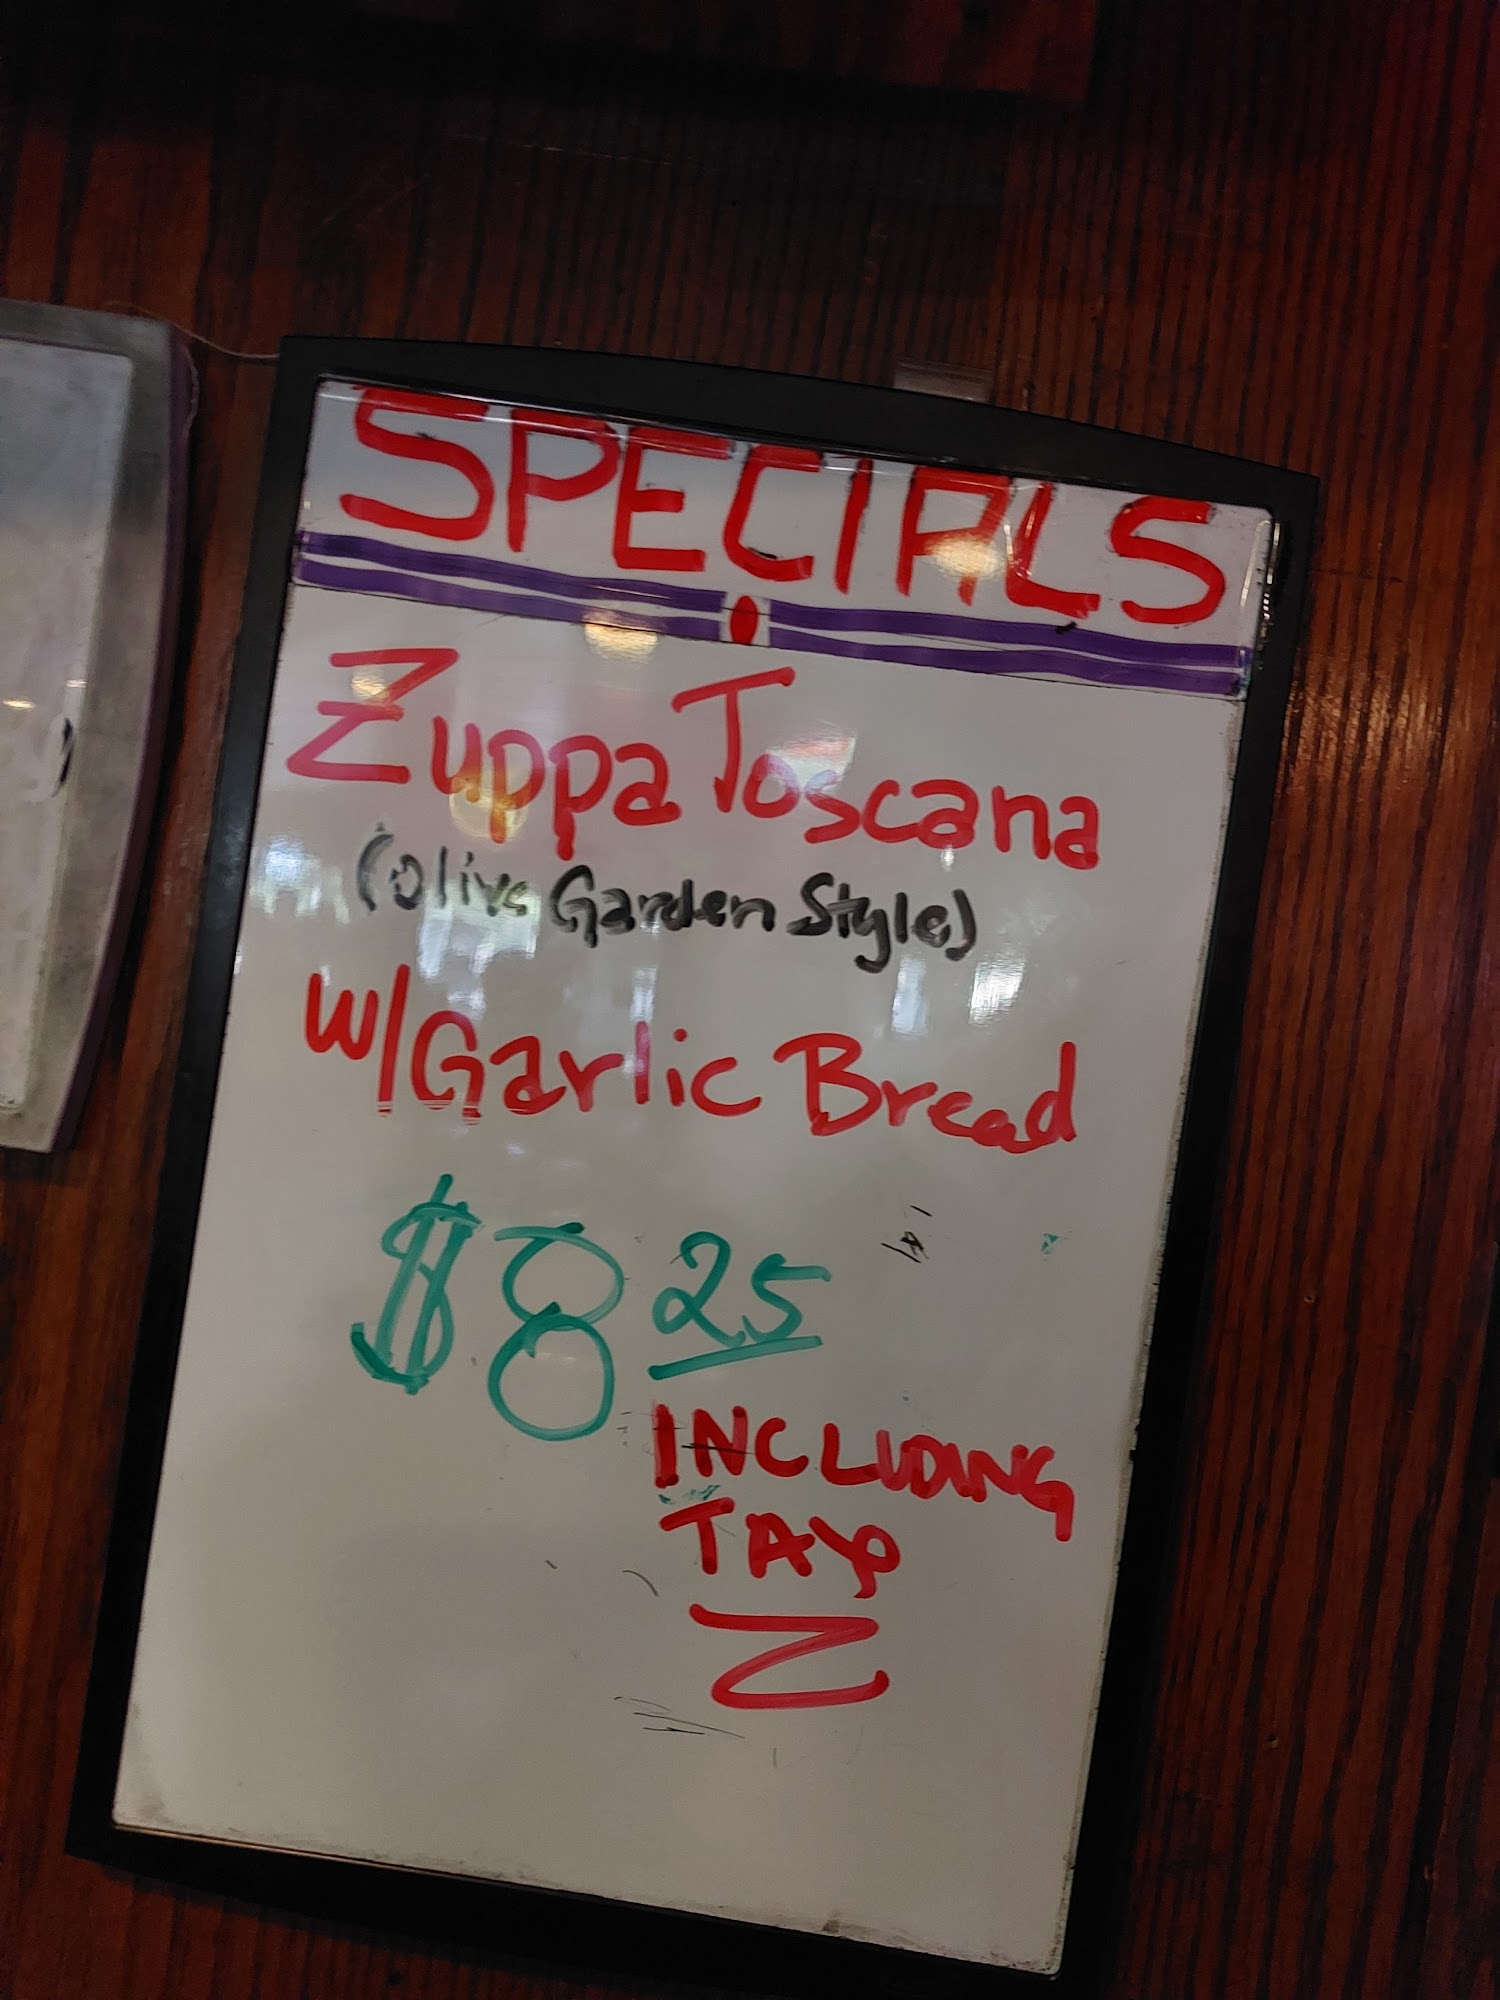 SPECIALS
Zuppa Toscana
(Olive Garden Style)
w/Garlic Bread
$8 25
INCLUDING
TAX